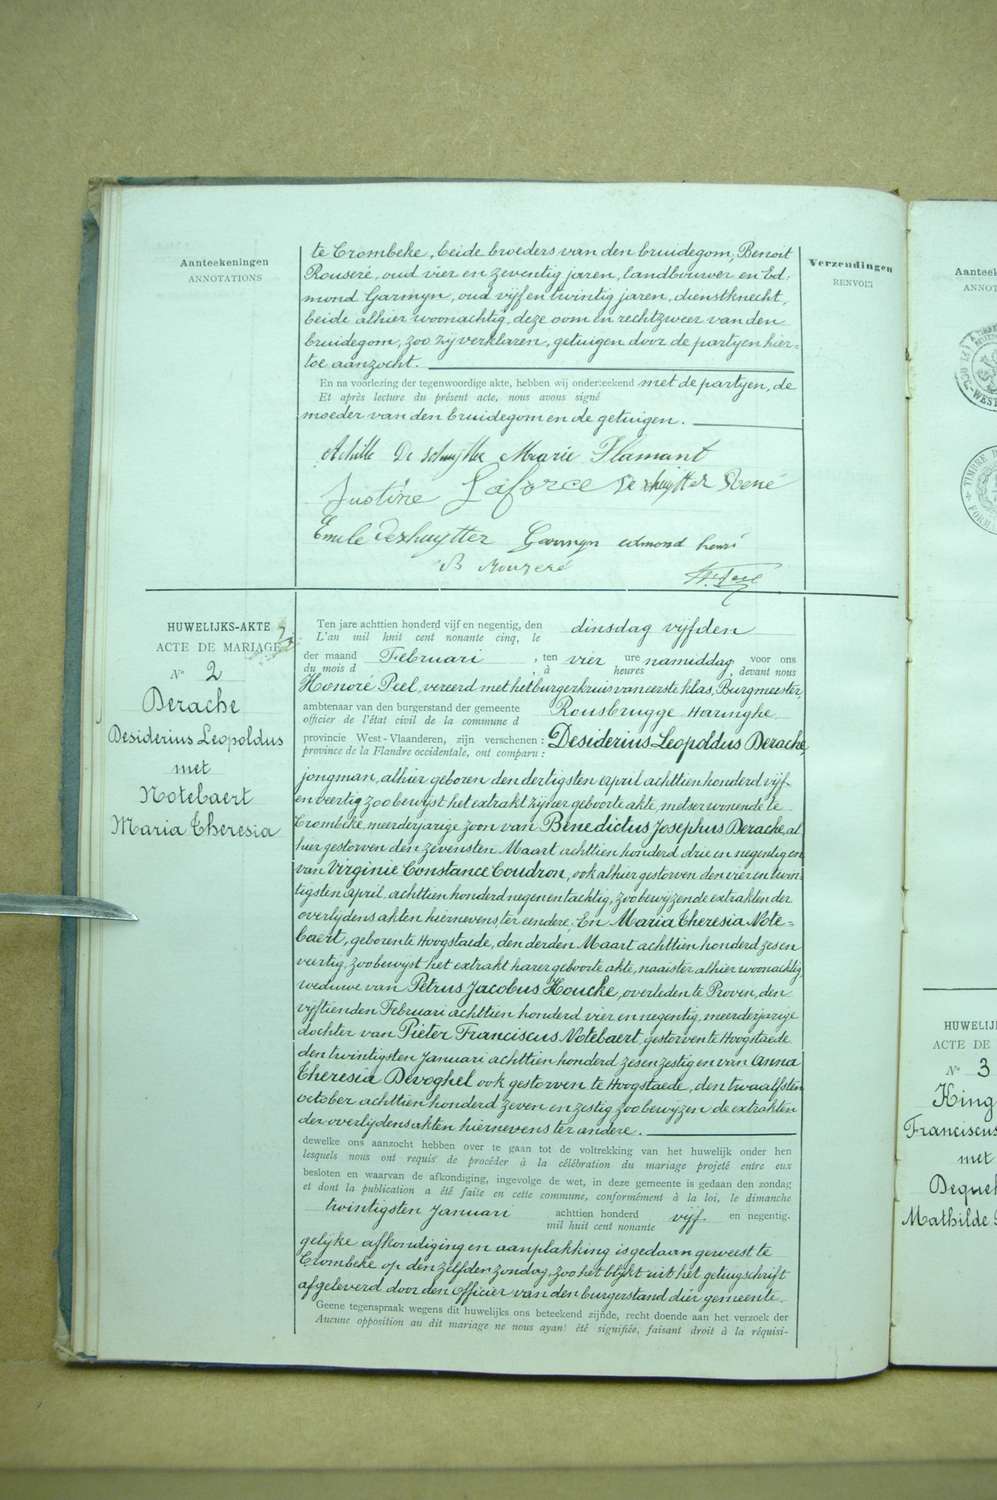 Aanteekeningen
ANNOTATIONS
Verzendingen
RENVOIS
te Crombeke, beide broeders van den bruidegom, Benoit
Rouseré, oud vier en zeventig jaren, landbouwer en Ed-
mond Garmyn, oud vijf en twintig jaren, dienstknecht,
beide alhier woonachtig, deze oom en rechtzweer van den
bruidegom, zoo zij verklaren, getuigen door de partyen hier-
toe aanzocht.
En na voorlezing der tegenwoordige akte, hebben wij onderteekend met de partyen, de
Et après lecture du présent acte, nous avons signé
moeder van den bruidegom en de getuigen.
Achille Marie Flamant
Justine Laforce René
Emile Garmyn edmond henri
B Rouzeré
HUWELIJKS-AKTE
ACTE DE MARIAGE
N° 2
Derache
Desiderius Leopoldus
met
Notebaert
Maria Theresia
Ten jare achttien honderd vijf en negentig, den dinsdag vijfden
L'an mil huit cent nonante cinq, le
der maand Februari, ten vier ure namiddag, voor ons
du mois d , à heures , devant nous
Honoré Peel, vereerd met het burgerkruis van eerste klas, Burgmeester,
ambtenaar van den burgerstand der gemeente Rousbrugge Haringhe
officier de l'état civil de la commune d
provincie West-Vlaanderen, zijn verschenen : Desiderius Leopoldus Derache,
province de la Flandre occidentale, ont comparu :
jongman, alhier geboren den dertigsten april achttien honderd vijf
en veertig, zoo bewijst het extrakt zijner geboorte akte, metser wonende te
Crombeke, meerderjarige zoon van Benedictus Josephus Derache, al
hier gestorven den zevensten Maart achttien honderd drie en negentig en
van Virginie Constance Coudron, ook alhier gestorven den vier en twin-
tigsten april, achttien honderd negen en tachtig, zoo bewijzende extrakten der
overlijdens akten hiernevens ter eendere; En Maria Theresia Note-
baert, geboren te Hoogstaede, den derden Maart achttien honderd zes en
veertig, zoo bewyst het extrakt harer geboorte akte, naaister alhier woonachtig
weduwe van Petrus Jacobus Houcke, overleden te Proven, den
vijftienden Februari achttien honderd vier en negentig, meerderjarige
dochter van Pieter Franciscus Notebaert, gestorven te Hoogstaede
den twintigsten Januari achttien honderd zes en zestig en van Anna
Theresia Devoghel ook gestorven te Hoogstaede, den twaalfsten
october achttien honderd zeven en zestig zoo bewyzen de extrakten
der overlijdens akten hiernevens ter andere.
dewelke ons aanzocht hebben over te gaan tot de voltrekking van het huwelijk onder hen
lesquels nous ont requis de procéder à la célébration du mariage projeté entre eux
besloten en waarvan de afkondiging, ingevolge de wet, in deze gemeente is gedaan den zondag
et dont la publication a été faite en cette commune, conformément à la loi, le dimanche
twintigsten Januari achttien honderd vijf en negentig.
mil huit cent nonante
gelijke afkondiging en aanplakking is gedaan geweest te
Crombeke op den zelfden zondag, zoo het blijkt uit het getuigschrift
afgeleverd door den officier van den burgerstand dier gemeente.
Geene tegenspraak wegens dit huwelijks ons beteekend zijnde, recht doende aan het verzoek der
Aucune opposition au dit mariage ne nous ayant été signifiée, faisant droit à la réquisi-
Aanteek
ANNOT
HUWELIJ
ACTE DE
N° 3
King
Franciscus
met
Mathilde